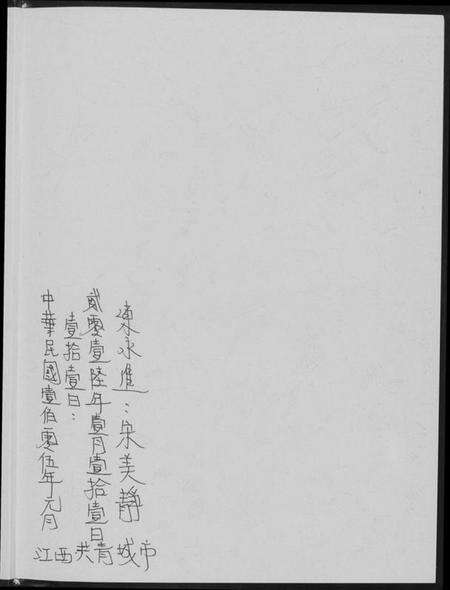 陳永進：宋美靜
貳零壹陸年壹月壹拾壹日
中華民國壹佰零伍年元月
壹拾壹日：
江西共青城市